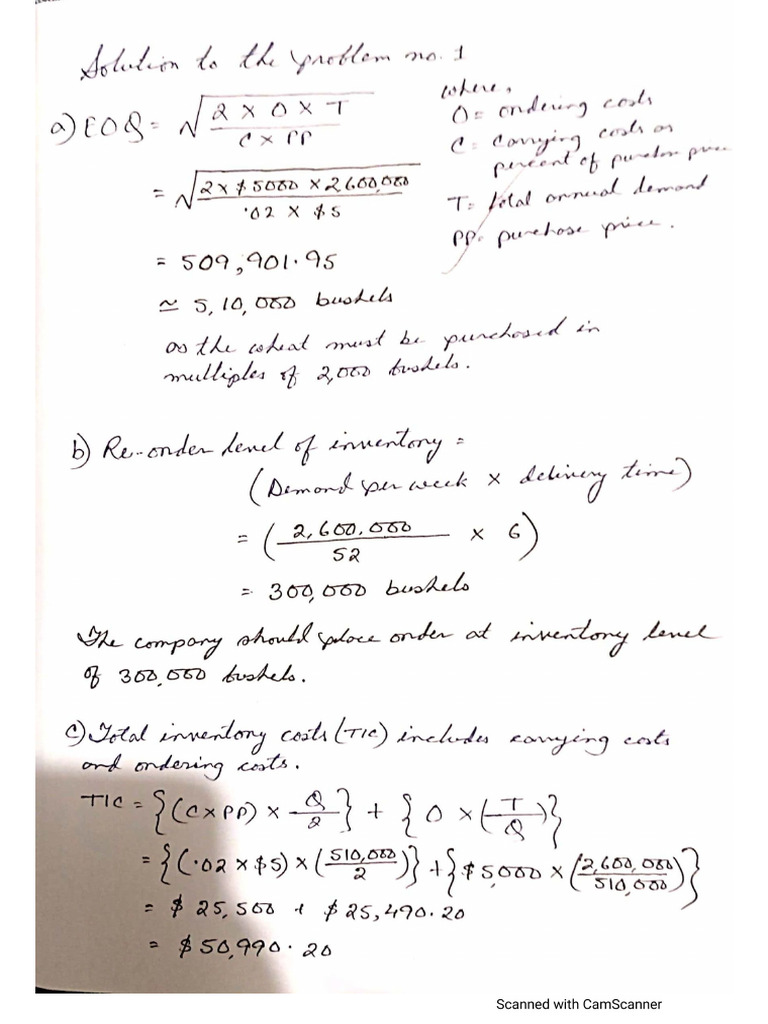 Solution to the problem no. 1
a) EOQ = √ 2 × O × T / C × PP
where,
O = ordering costs
C = carrying costs as
percent of purchase price
T = total annual demand
PP = purchase price.
= √ 2 × $5000 × 2600,000 / .02 × $5
= 509,901.95
≃ 5,10,000 bushels
as the wheat must be purchased in
multiples of 2,000 bushels.
b) Re-order level of inventory =
(Demand per week × delivery time)
= ( 2,600,000 / 52 × 6 )
= 300,000 bushels
The company should place order at inventory level
of 300,000 bushels.
c) Total inventory costs (TIC) includes carrying costs
and ordering costs.
TIC = {(C×PP) × Q/2} + {O × (T/Q)}
= {(.02 × $5) × (510,000/2)} + {$5,000 × (2,600,000/510,000)}
= $25,500 + $25,490.20
= $50,990.20
Scanned with CamScanner